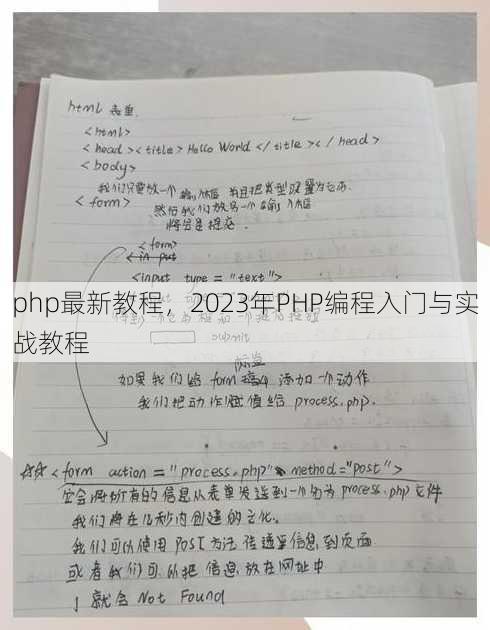 html 表单.
<html>
<head><title>Hello World</title></head>
<body>
我们只要放一个 输入标签 并且把类型设置为它.
<form> 然后我们放另一个输入标签
将会是提交.
<form>
<input type = "text">
php最新教程，2023年PHP编程入门与实
战教程
submit
标签
如果我们给 form 添加一个动作
我们把动作赋值给 process.php.
<form action = "process.php" method="post">
它会将所有的信息从表单发送到一个名为 process.php 文件
我们将在几秒内创建的文化.
我们可以使用 POST 方法 传递信息到页面
或者我们可以把信息放在网址中
就会 Not Found